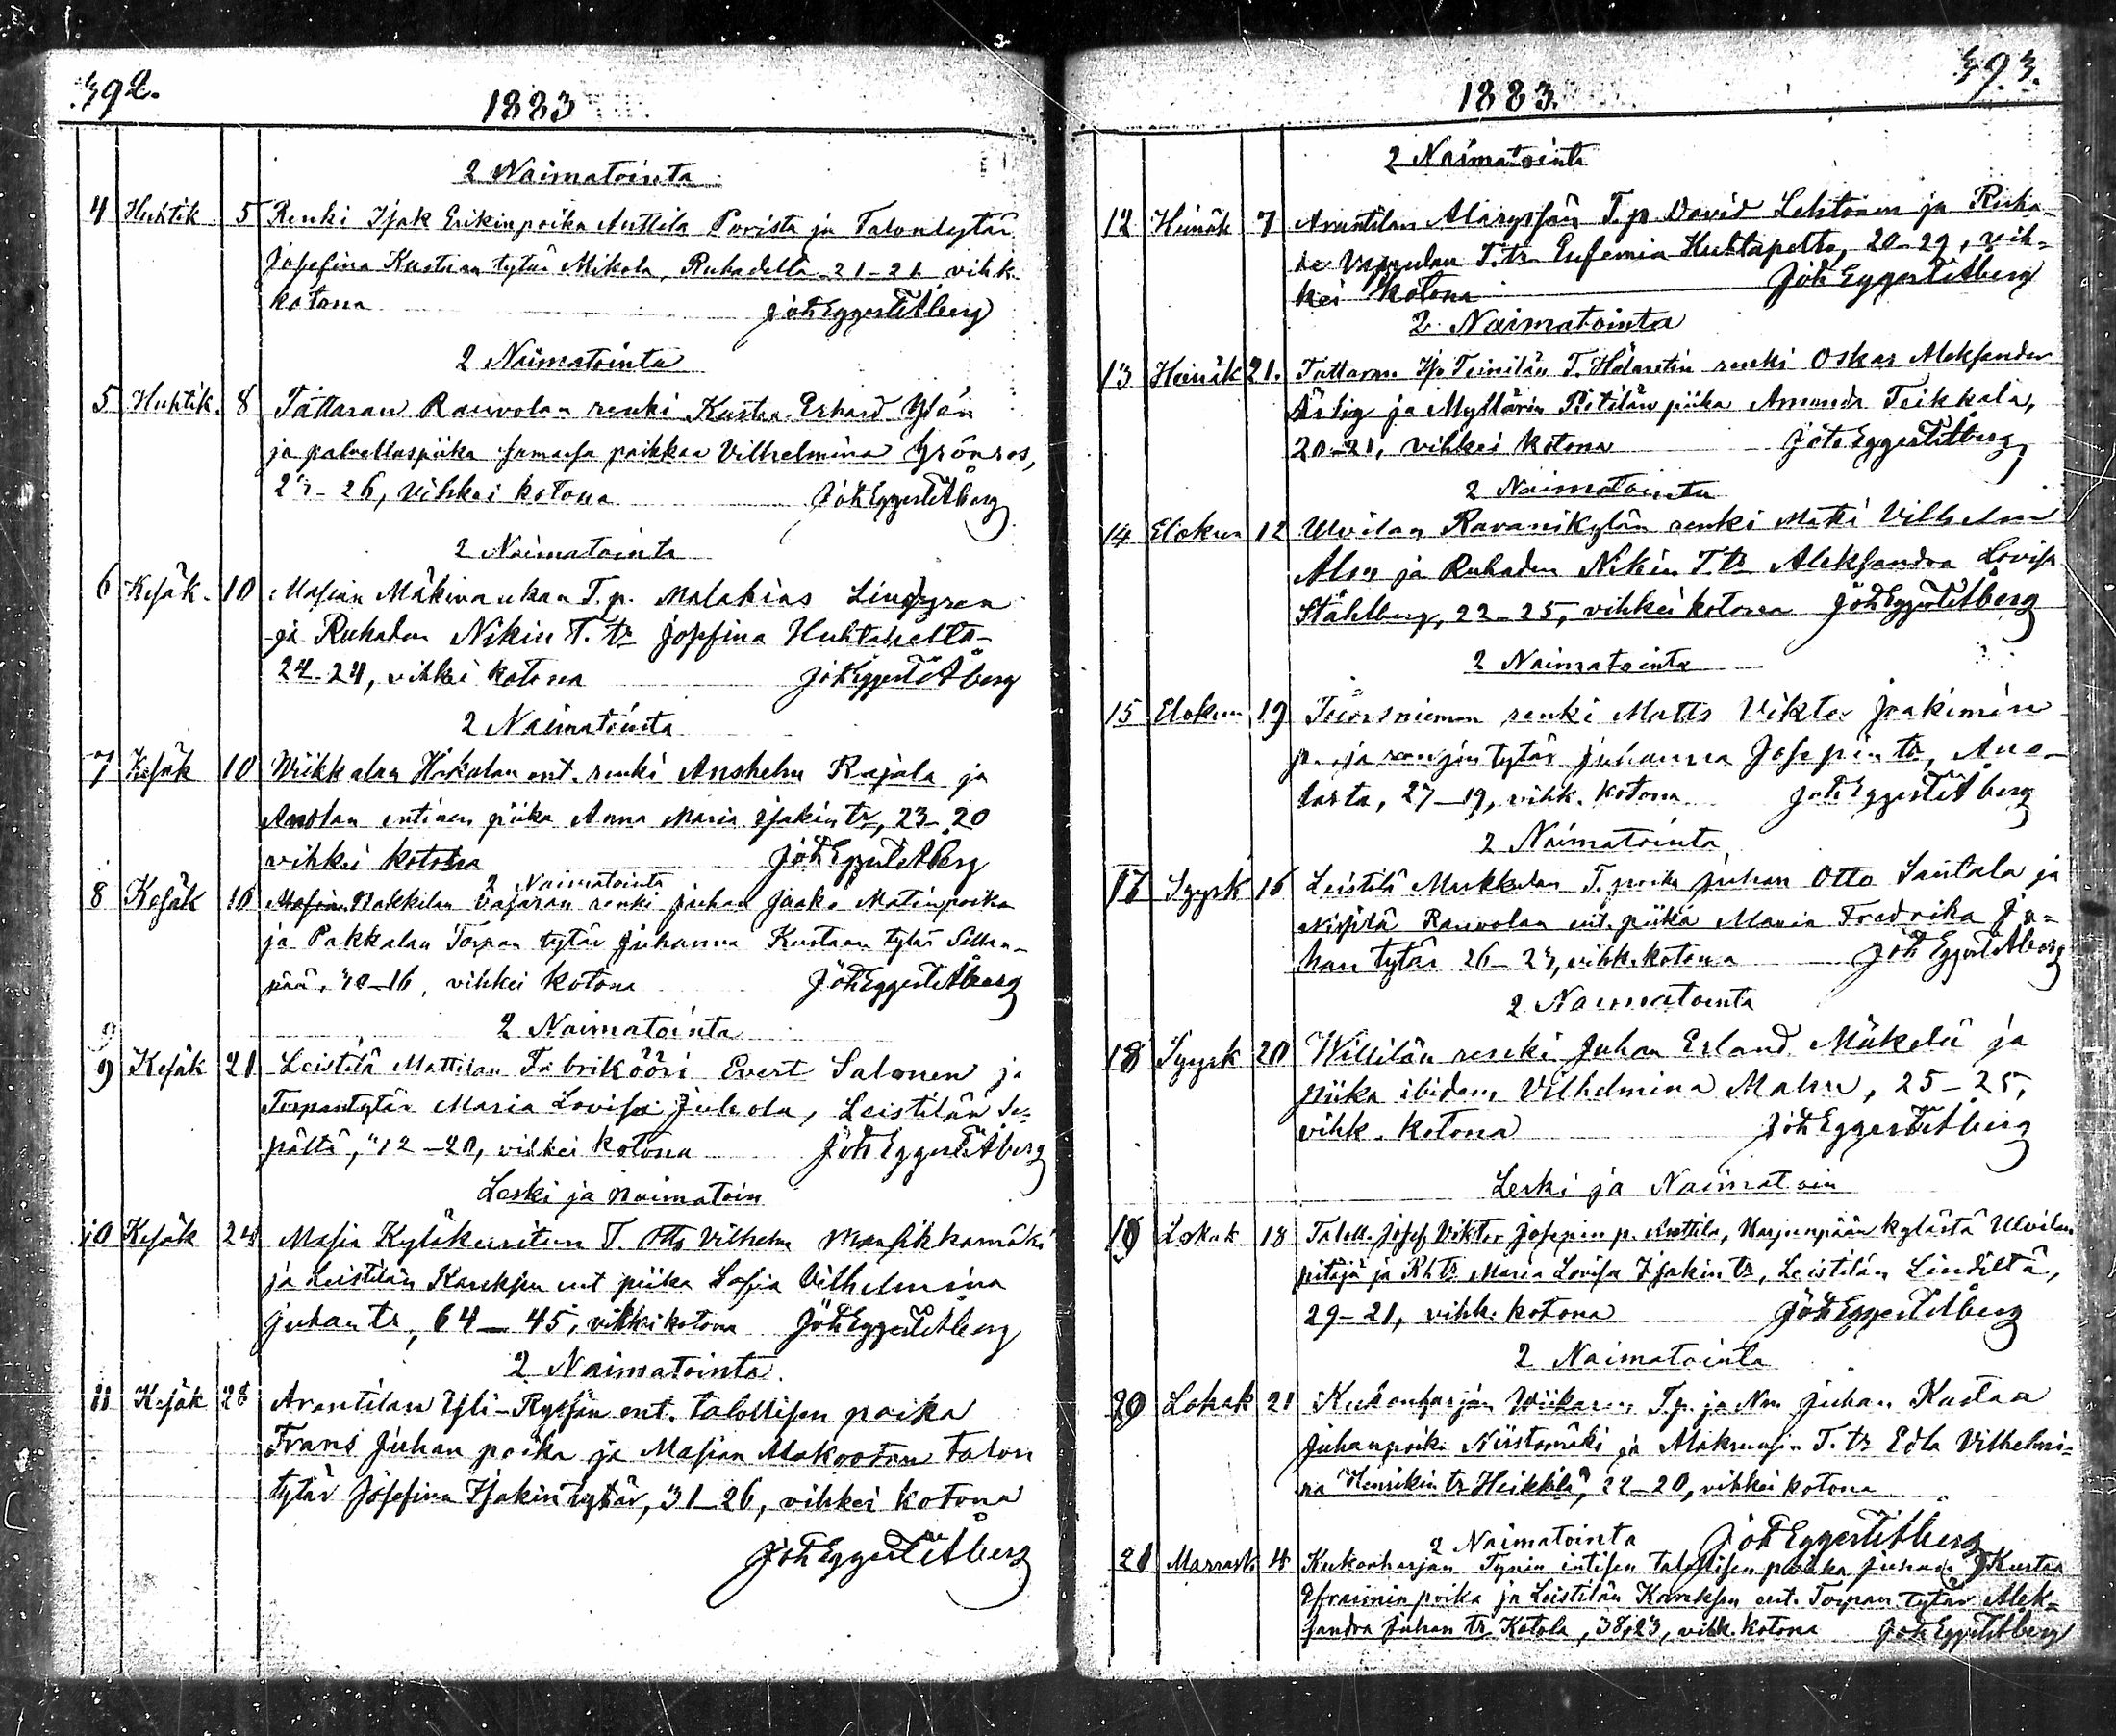 392.
1883
2 Naimatointa
4 Huhtik. 5 Renki Isak Erikinpoika Anttila Porista ja Talontytär
Josefina Kustaan tytär Mikola, Ruhadelta 21-21, vihk.
kotona Joh Eggert Åberg
2 Naimatointa
5 Huhtik. 8 Tattaran Rauvolan renki Kustaa Erhard Ylén
ja palvelluspiika samassa paikkaa Vilhelmina Grönros,
23-26, vihkei kotona Joh Eggert Åberg
2 Naimatointa
6 Kesäk. 10 Masian T.p. Malakias Lindgren
ja Ruhaden Nikin T. tr Josefina Huhtapelto
24-24, vihkei kotona Joh Eggert Åberg
2 Naimatointa
7 Kesäk 10 ent. renki Anshelm Rajala ja
Anolan entinen piika Anna Maria Isakin tr, 23-20
vihkei kotona Joh Eggert Åberg
2 Naimatointa
8 Kesäk 10 Nakkilan Vasaran renki Juhan Jaako Matinpoika
ja Pakkalan Torpan tytär Juhanna Kustaan tytär Sillan-
pää, 30-16, vihkei kotona Joh Eggert Åberg
2 Naimatointa
9 Kesäk 21 Leistilä Mattilan Fabrikööri Evert Salonen ja
Torpantytär Maria Lovisa Juhola, Leistilän Se-
pältä, 42-20, vihkei kotona Joh Eggert Åberg
Leski ja naimatoin
10 Kesäk 24 Masia T. Otto Vilhelm Mansikkamäki
ja Leistilän Kareksen ent piika Sofia Vilhelmina
Juhan tr, 64-45, vihkei kotona Joh Eggert Åberg
2 Naimatointa
11 Kesäk 28 Arantilan Yli-Ryssän ent. talollisen poika
Frans Juhan poika ja Masian Alakooton talon
tytär Josefina Isakin tytär, 31-26, vihkei kotona
Joh Eggert Åberg
393.
1883.
2 Naimatointa
12 Heinäk 7 Arantilan Alaryssän T.p. David Lehtonen ja Ruha-
de Vappulan T.tr Eufemia Huhtapelto, 20-29, vih-
kei kotona Joh Eggert Åberg
2 Naimatointa
13 Heinäk 21. Tattaran Teinilän T. renki Oskar Aleksander
Ärlig ja Myllärin piika Amanda Teikkala,
20-21, vihkei kotona Joh Eggert Åberg
2 Naimatointa
14 Elokuu 12 Ulvilan Ravanikylän renki Matti Vilhelm
ja Ruhaden Nikin T. tr Aleksandra Lovisa
Ståhlberg, 22-25, vihkei kotona Joh Eggert Åberg
2 Naimatointa
15 Elokuu 19 renki Matts Viktor Joakimin
p. ja tytär Juhanna Josepin tr, Ano-
lasta, 27-19, vihk. kotona Joh Eggert Åberg
2 Naimatointa
17 Syysk 16 Leistilä T. poika Juhan Otto Santala ja
Rauvolan ent. piika Maria Fredrika Ju-
han tytär 26-23, vihk. kotona Joh Eggert Åberg
2 Naimatointa
18 Syysk 20 Willilän renki Juhan Erland Mäkelä ja
piika ibidem Vilhelmina Malm, 25-25,
vihk. kotona Joh Eggert Åberg
Leski ja Naimatoin
19 Lokak 18 Talell. Josef Viktor Josepin p. Anttila, Harjunpään kylästä Ulvilan
pitäjä ja Rh tr Maria Lovisa Isakin tr, Leistilän Lindiltä,
29-21, vihk. kotona Joh Eggert Åberg
2 Naimatointa
20 Lokak 21 Kukonharjan T.p. ja Nm Juhan Kustaa
Juhanpoika Niistomäki ja T. tr Edla Vilhelmi-
na Henrikin tr Heikkilä, 22-20, vihkei kotona
Joh Eggert Åberg
2 Naimatointa
21 Marrask 4 Kukonharjan Tynin entisen talollisen poika Juhan Kustaa
Efraimin poika ja Leistilän Kareksen ent. Torpan tytär Alek-
sandra Juhan tr Katola, 38,23, vihk. kotona Joh Eggert Åberg